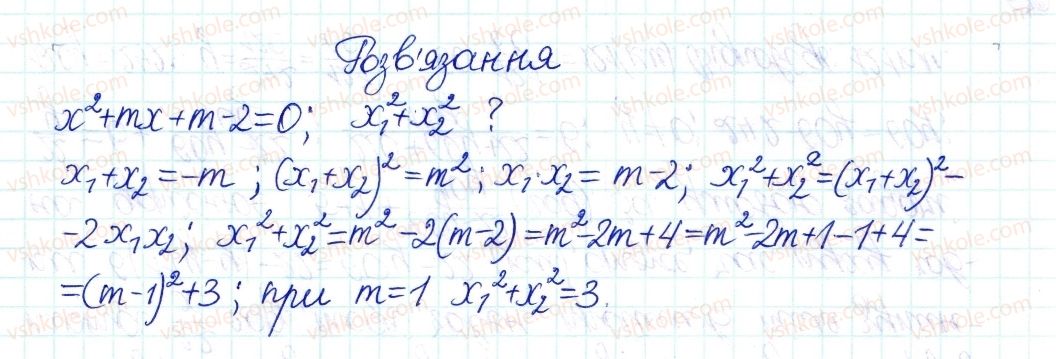 Розв'язання
x²+mx+m-2=0; x₁²+x₂² ?
x₁+x₂=-m; (x₁+x₂)²=m²; x₁·x₂= m-2; x₁²+x₂²=(x₁+x₂)²-
-2x₁x₂; x₁²+x₂²=m²-2(m-2)=m²-2m+4=m²-2m+1-1+4=
=(m-1)²+3; при m=1 x₁²+x₂²=3.